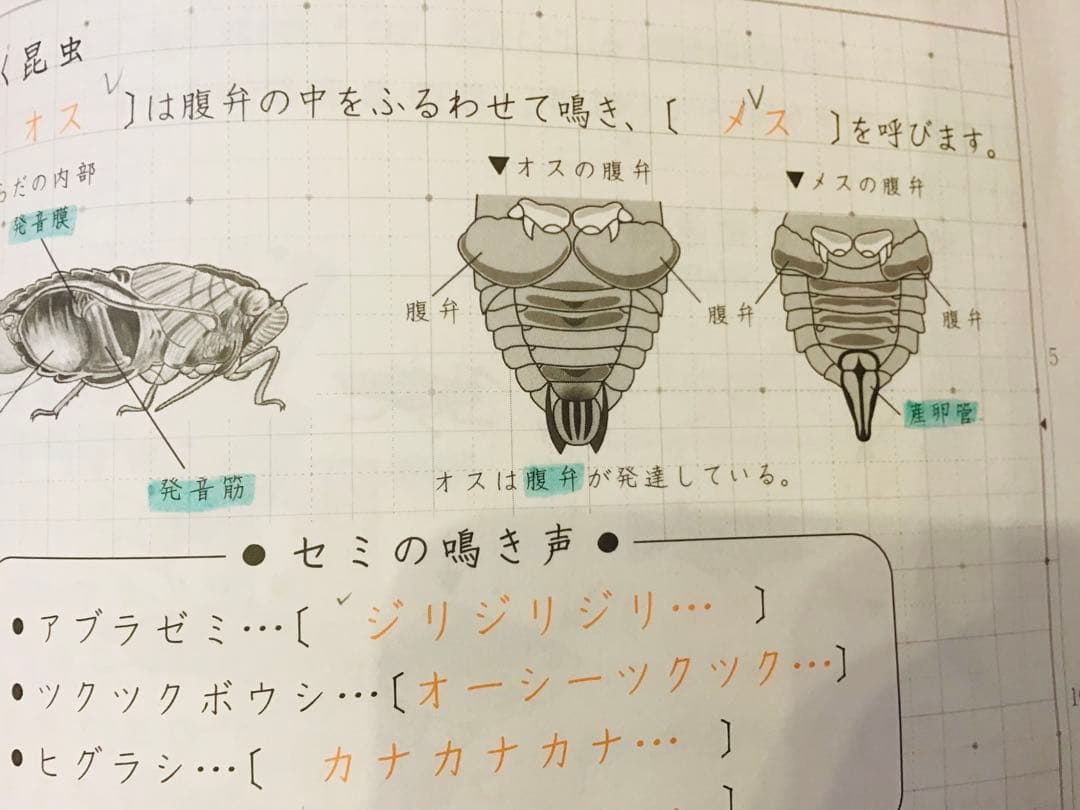 く昆虫
オス 〕は腹弁の中をふるわせて鳴き、〔 メス 〕を呼びます。
らだの内部
▼オスの腹弁
▼メスの腹弁
発音膜
腹弁
腹弁
腹弁
産卵管
発音筋
オスは腹弁が発達している。
5
●セミの鳴き声●
•アブラゼミ…〔 ジリジリジリ… 〕
•ツクツクボウシ…〔オーシーツクツク…〕
•ヒグラシ…〔 カナカナカナ… 〕